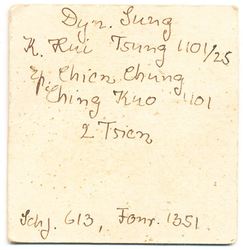 Dyn. Sung
K. Hui Tsung 1101/25
Ep. Chien Chung
Ching Kuo 1101
2 Tsien
Schj. 613, Fonr. 1351.